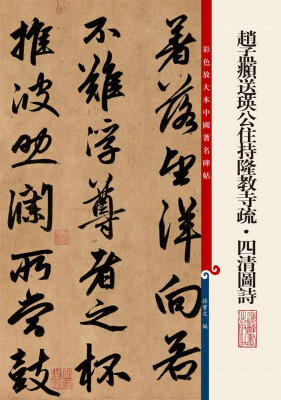 趙孟頫送瑛公住持隆教寺疏·四清圖詩
彩色放大本中國著名碑帖
孫寶文 編
著落望洋向若
不難浮尊者之杯
推波助瀾所鼓